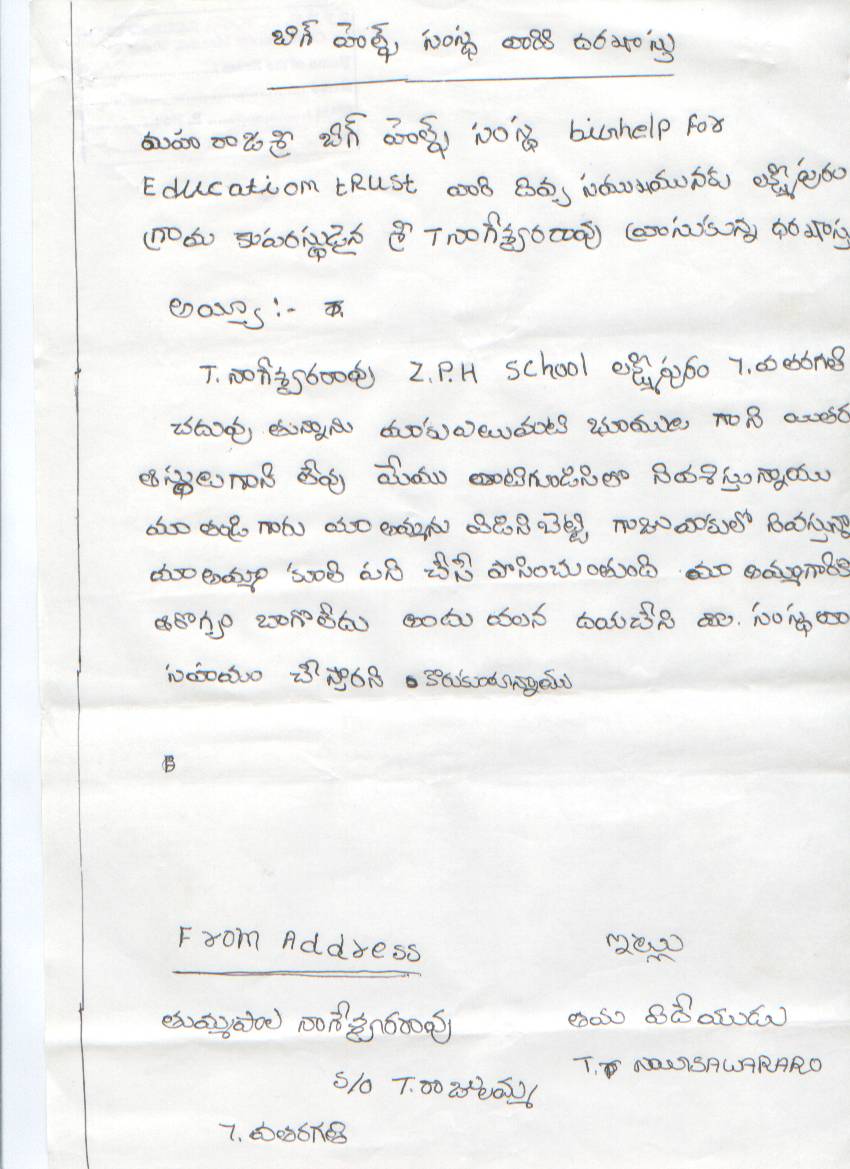 బిగ్ హెల్ప్ సంస్థ వారికి దరఖాస్తు
మహ రాజశ్రీ బిగ్ హెల్ప్ సంస్థ bighelp For
Education tRust వారి దివ్య సముఖమునకు లక్ష్మీపురం
గ్రామ కాపరస్థుడైన శ్రీ T నాగేశ్వరరావు వ్రాసుకున్న ధరఖాస్తు
అయ్యా :-
T. నాగేశ్వరరావు Z.P.H School లక్ష్మీపురం 7. వ తరగతి
చదువు తున్నాను మాకు ఎటువంటి భూములు గాని యితర
ఆస్థులు గాని లేవు మేము తాటిగుడిసెలో నివశిస్తున్నాము
మా తండ్రి గారు మా అమ్మను విడిచి బెట్టి గాజువాకలో నివస్తున్నా
మా అమ్మ కూలి పని చేసి పోసించుంతుంది మా అమ్మగారికి
ఆరోగ్యం బాగాలేదు అందు వలన దయచేసి మా. సంస్థ
సహయం చేస్తారని కోరుకుంటున్నాము
From Address ఇట్లు
తుమ్మపాల నాగేశ్వరరావు తమ విదేయుడు
S/o T. రాజులమ్మ
7. వ తరగతి